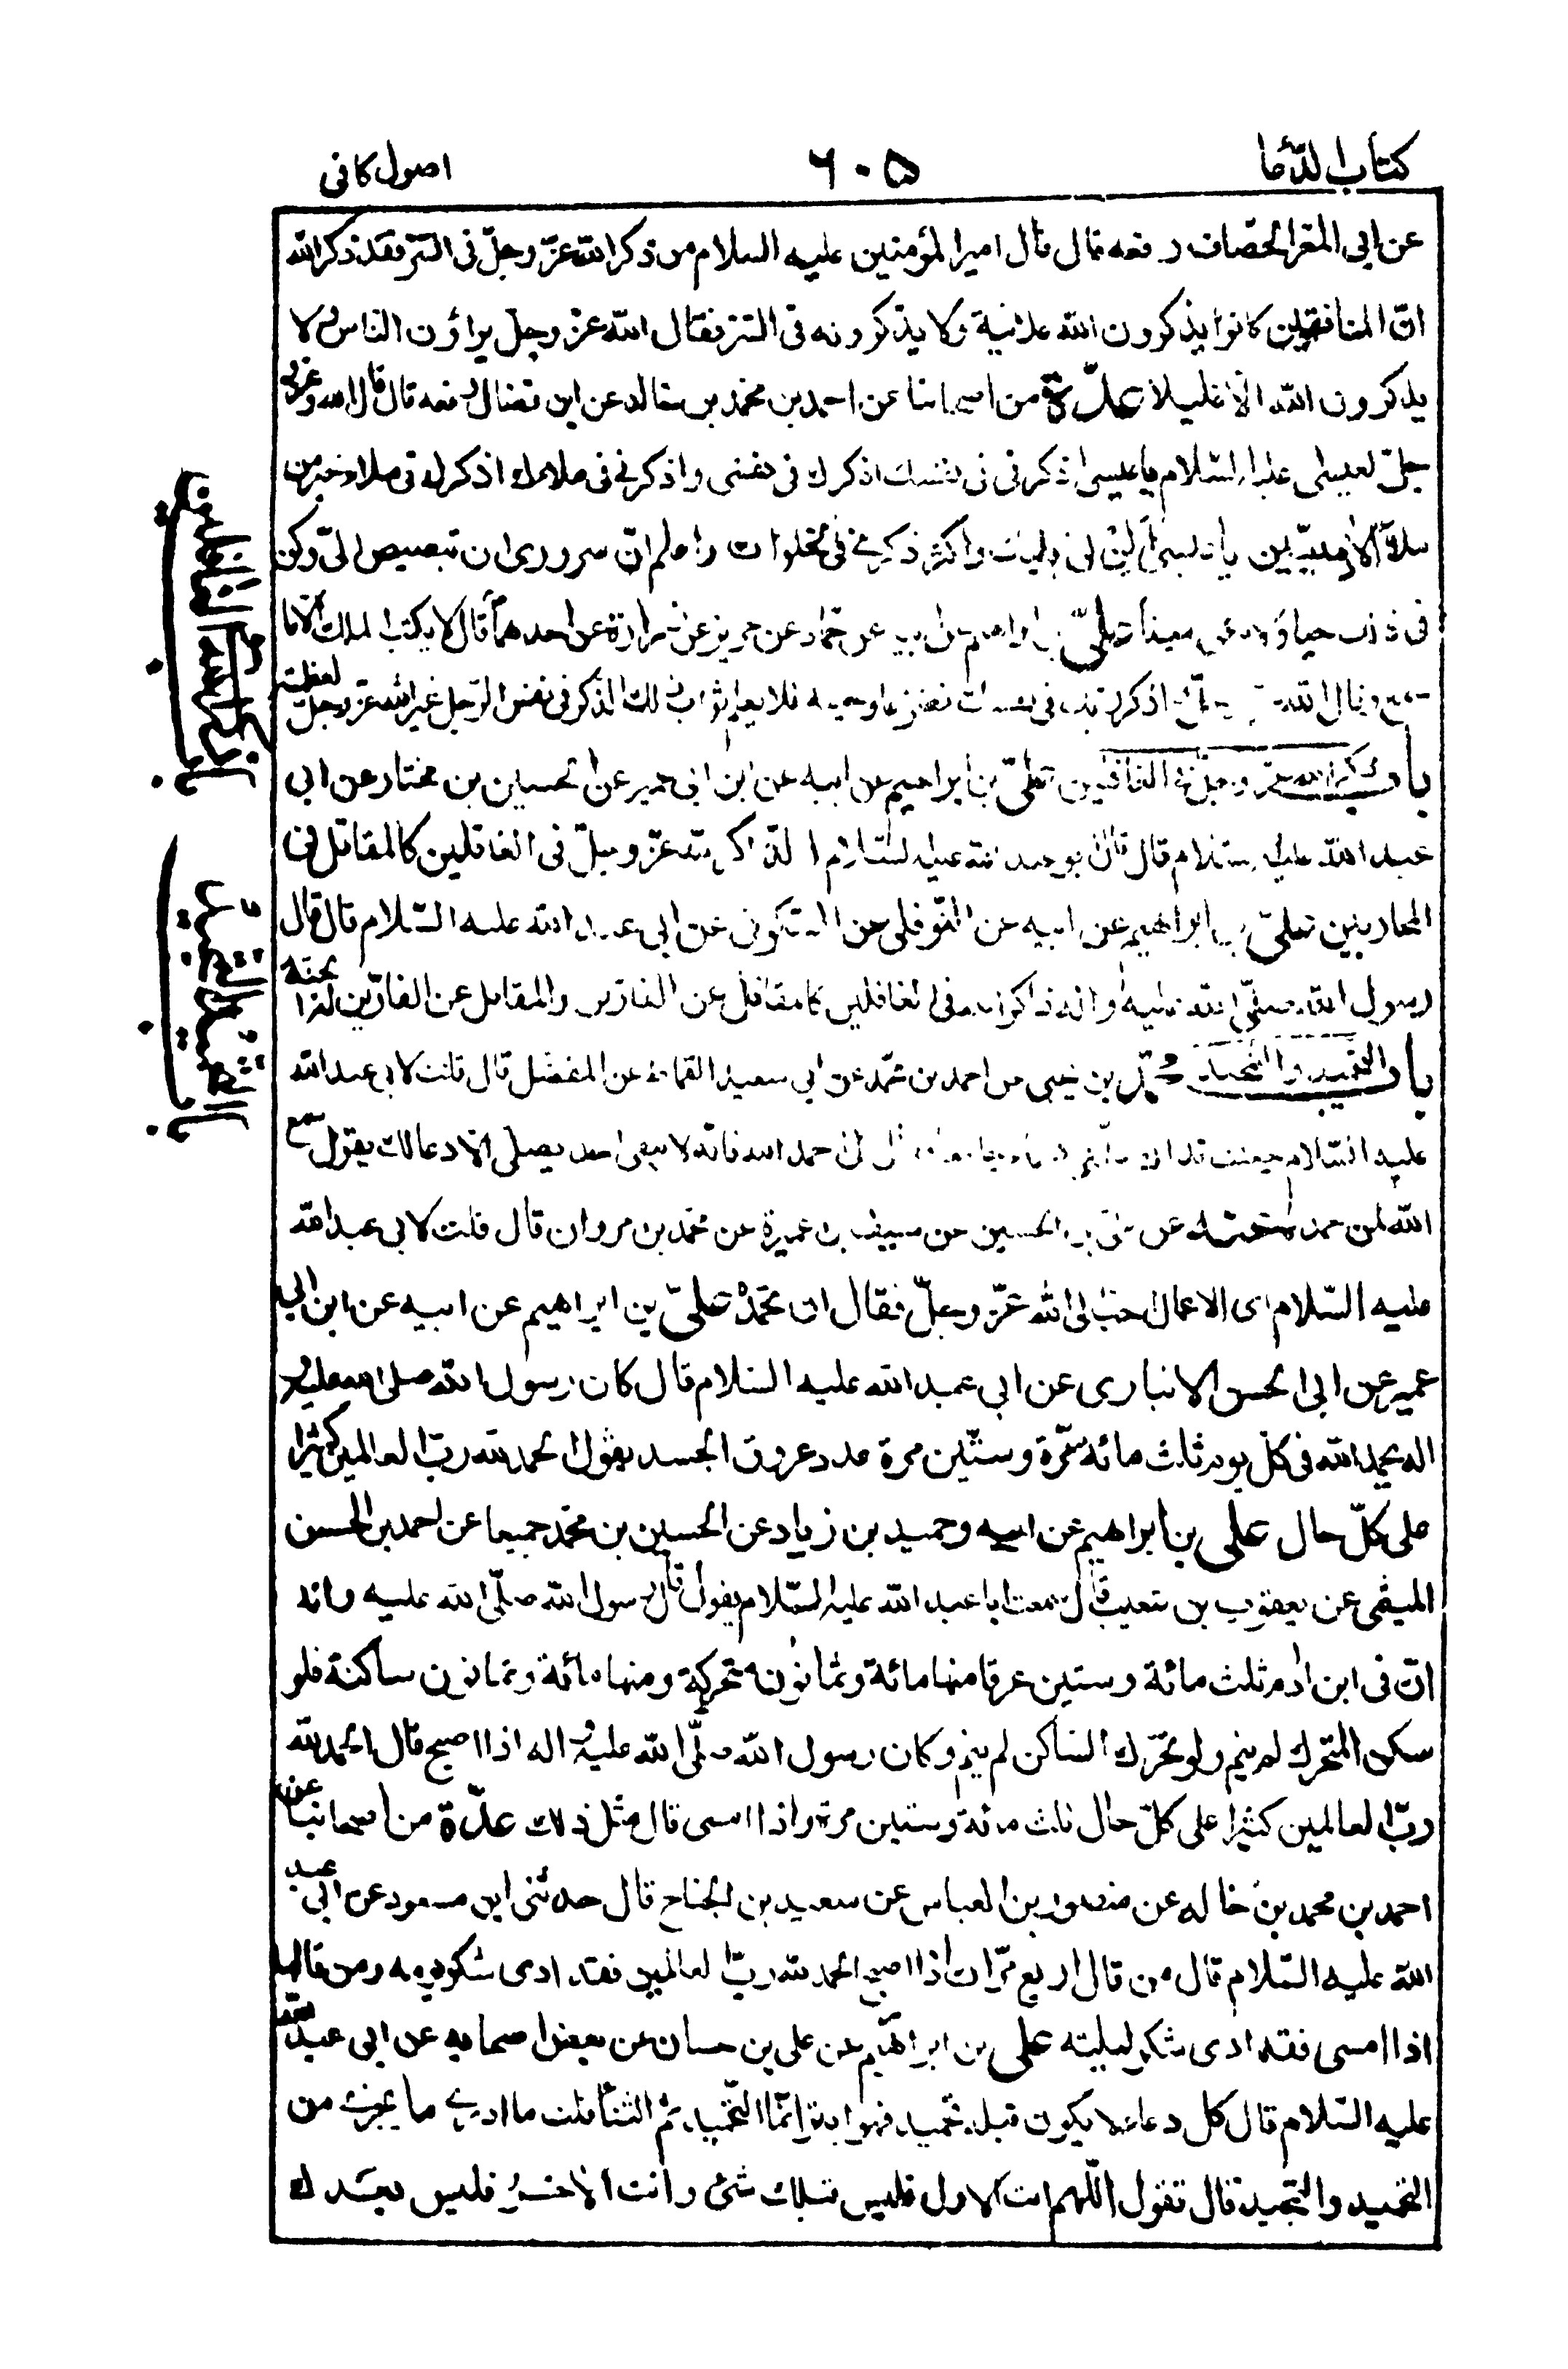 كتاب الدّعا
٦٠٥
اصول كافى
عن ابى المغرا الخصّاف رفعه قال قال امير المؤمنين عليه السلام من ذكر الله عزّ وجلّ فى السّر فقد ذكر الله
انّ المنافقين كانوا يذكرون الله علانية ولا يذكرونه فى السّر فقال الله عزّ وجلّ يراؤن الناس ولا
يذكرون الله الّا قليلا عدّة من اصحابنا عن احمد بن محمّد بن خالد عن ابن فضال رفعه قال قال الله عزّ و
جلّ لعيسى عليه السّلام يا عيسى اذكرنى فى نفسك اذكرك فى نفسى واذكرنے فى ملاءك اذكرك فى ملاء خير من
ملأ الآدميّين يا عيسى ألن لى قلبك واكثر ذكرے فى الخلوات واعلم انّ سرورى ان تبصبص الىّ وكن
فى ذلك حيا ولا ميتا علىّ بن ابراهيم عن ابيه عن حمّاد عن حريز عن زرارة عن احدهما قال لا يكتب الملك الّا ما
سمع وقال الله واذكر ربك فى نفسك تضرعا وخيفة فلا يعلم ثواب ذلك الذكر فى نفس الرّجل غير الله عزّ وجلّ لعظمته
باب ذكر الله عزّ وجلّ فى الغافلين علىّ بن ابراهيم عن ابيه عن ابن ابى عمير عن الحسين بن مختار عن ابى
عبد الله عليه السّلام قال قال ابو عبد الله عليه السّلام الذّاكر لله عزّ وجلّ فى الغافلين كالمقاتل فى
المحاربين علىّ بن ابراهيم عن ابيه عن النّوفلى عن السّكونى عن ابى عبد الله عليه السّلام قال قال
رسول الله صلّى الله عليه واله ذاكر الله فى الغافلين كالمقاتل عن الفارّين والمقاتل عن الفارّين له الجنّة
باب التّحميد والتّمجيد محمّد بن يحيى عن احمد بن محمّد عن ابى سعيد القماط عن المفضّل قال قلت لابى عبد الله
عليه السّلام جعلت فداك علّمنى دعاء جامعا فقال لى احمد الله فانّه لا يبقى احد يصلّى الّا دعا لك يقول سمع
الله لمن حمده عنه عن علىّ بن الحسين عن سيف بن عميرة عن محمّد بن مروان قال قلت لابى عبد الله
عليه السّلام اى الاعمال احبّ الى الله عزّ وجلّ فقال ان تحمّده علىّ بن ابراهيم عن ابيه عن ابن ابى
عمير عن ابى الحسن الانبارى عن ابى عبد الله عليه السّلام قال كان رسول الله صلى الله عليه و
اله يحمد الله فى كلّ يوم ثلث مائة مرّة وستّين مرة عدد عروق الجسد يقول الحمد لله ربّ العالمين كثيرا
على كلّ حال على بن ابراهيم عن ابيه وحميد بن زياد عن الحسين بن محمّد جميعا عن احمد بن الحسن
الميثمى عن يعقوب بن شعيب قال سمعت ابا عبد الله عليه السّلام يقول قال رسول الله صلّى الله عليه واله
انّ فى ابن ادم ثلث مائة وستين عرقا منها مائة وثمانون متحركة ومنها مائة وثمانون ساكنة فلو
سكن المتحرك لم ينم ولو تحرّك السّاكن لم ينم وكان رسول الله صلّى الله عليه واله اذا اصبح قال الحمد لله
ربّ العالمين كثيرا على كلّ حال ثلث مائة وستين مرة واذا امسى قال مثل ذلك عدّة من اصحابنا عن
احمد بن محمد بن خالد عن منصور بن العباس عن سعيد بن الجناح قال حدثنى ابن مسعود عن ابى عبد
الله عليه السّلام قال من قال اربع مرّات اذا اصبح الحمد لله ربّ العالمين فقد ادى شكر يومه ومن قالها
اذا امسى فقد ادى شكر ليلته على بن ابراهيم عن على بن حسان عن بعض اصحابه عن ابى عبد الله
عليه السّلام قال كل دعاء لا يكون قبله تحميد فهو ابتر انّما التّحميد ثمّ الثناء قلت ما ادرے ما يجزے من
التحميد والتّمجيد قال تقول اللّهم انت الاول فليس قبلك شئ وانت الاخر فليس بعدك
باب ذكر الله فى الغافلين
باب التحميد والتمجيد